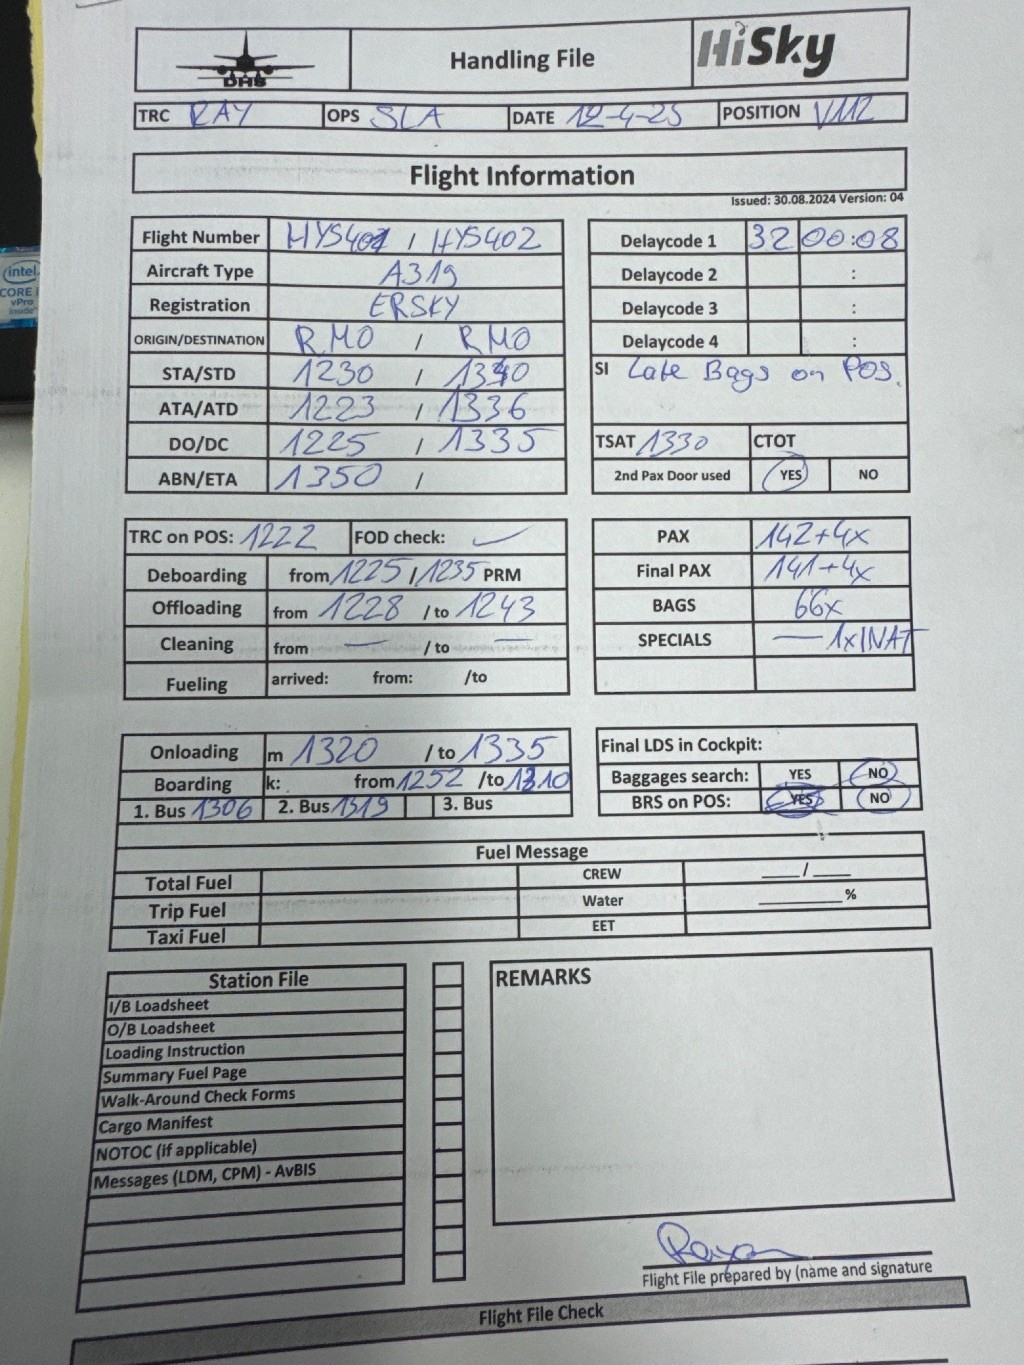 DHS Handling File HiSky
TRC RAY OPS SLA DATE 12-4-25 POSITION V112
Flight Information
Issued: 30.08.2024 Version: 04
Flight Number HYS401 / HYS402
Aircraft Type A319
Registration ERSKY
ORIGIN/DESTINATION RMO / RMO
STA/STD 1230 / 1340
ATA/ATD 1223 / 1336
DO/DC 1225 / 1335
ABN/ETA 1350 /
Delaycode 1 32 00:08
Delaycode 2 :
Delaycode 3 :
Delaycode 4 :
SI Late Bags on POS.
TSAT 1330 CTOT
2nd Pax Door used YES NO
TRC on POS: 1222 FOD check:
Deboarding from 1225 / 1235 PRM
Offloading from 1228 / to 1243
Cleaning from — / to —
Fueling arrived: from: /to
PAX 142+4x
Final PAX 141+4x
BAGS 66x
SPECIALS — 1xINAT
Onloading m 1320 / to 1335
Boarding k: from 1252 /to 1310
1. Bus 1306 2. Bus 1319 3. Bus
Final LDS in Cockpit:
Baggages search: YES NO
BRS on POS: YES NO
Fuel Message
Total Fuel CREW ___/___
Trip Fuel Water ________%
Taxi Fuel EET
Station File
I/B Loadsheet
O/B Loadsheet
Loading Instruction
Summary Fuel Page
Walk-Around Check Forms
Cargo Manifest
NOTOC (if applicable)
Messages (LDM, CPM) - AvBIS
REMARKS
Flight File prepared by (name and signature
Flight File Check
intel
CORE i
vPro
inside